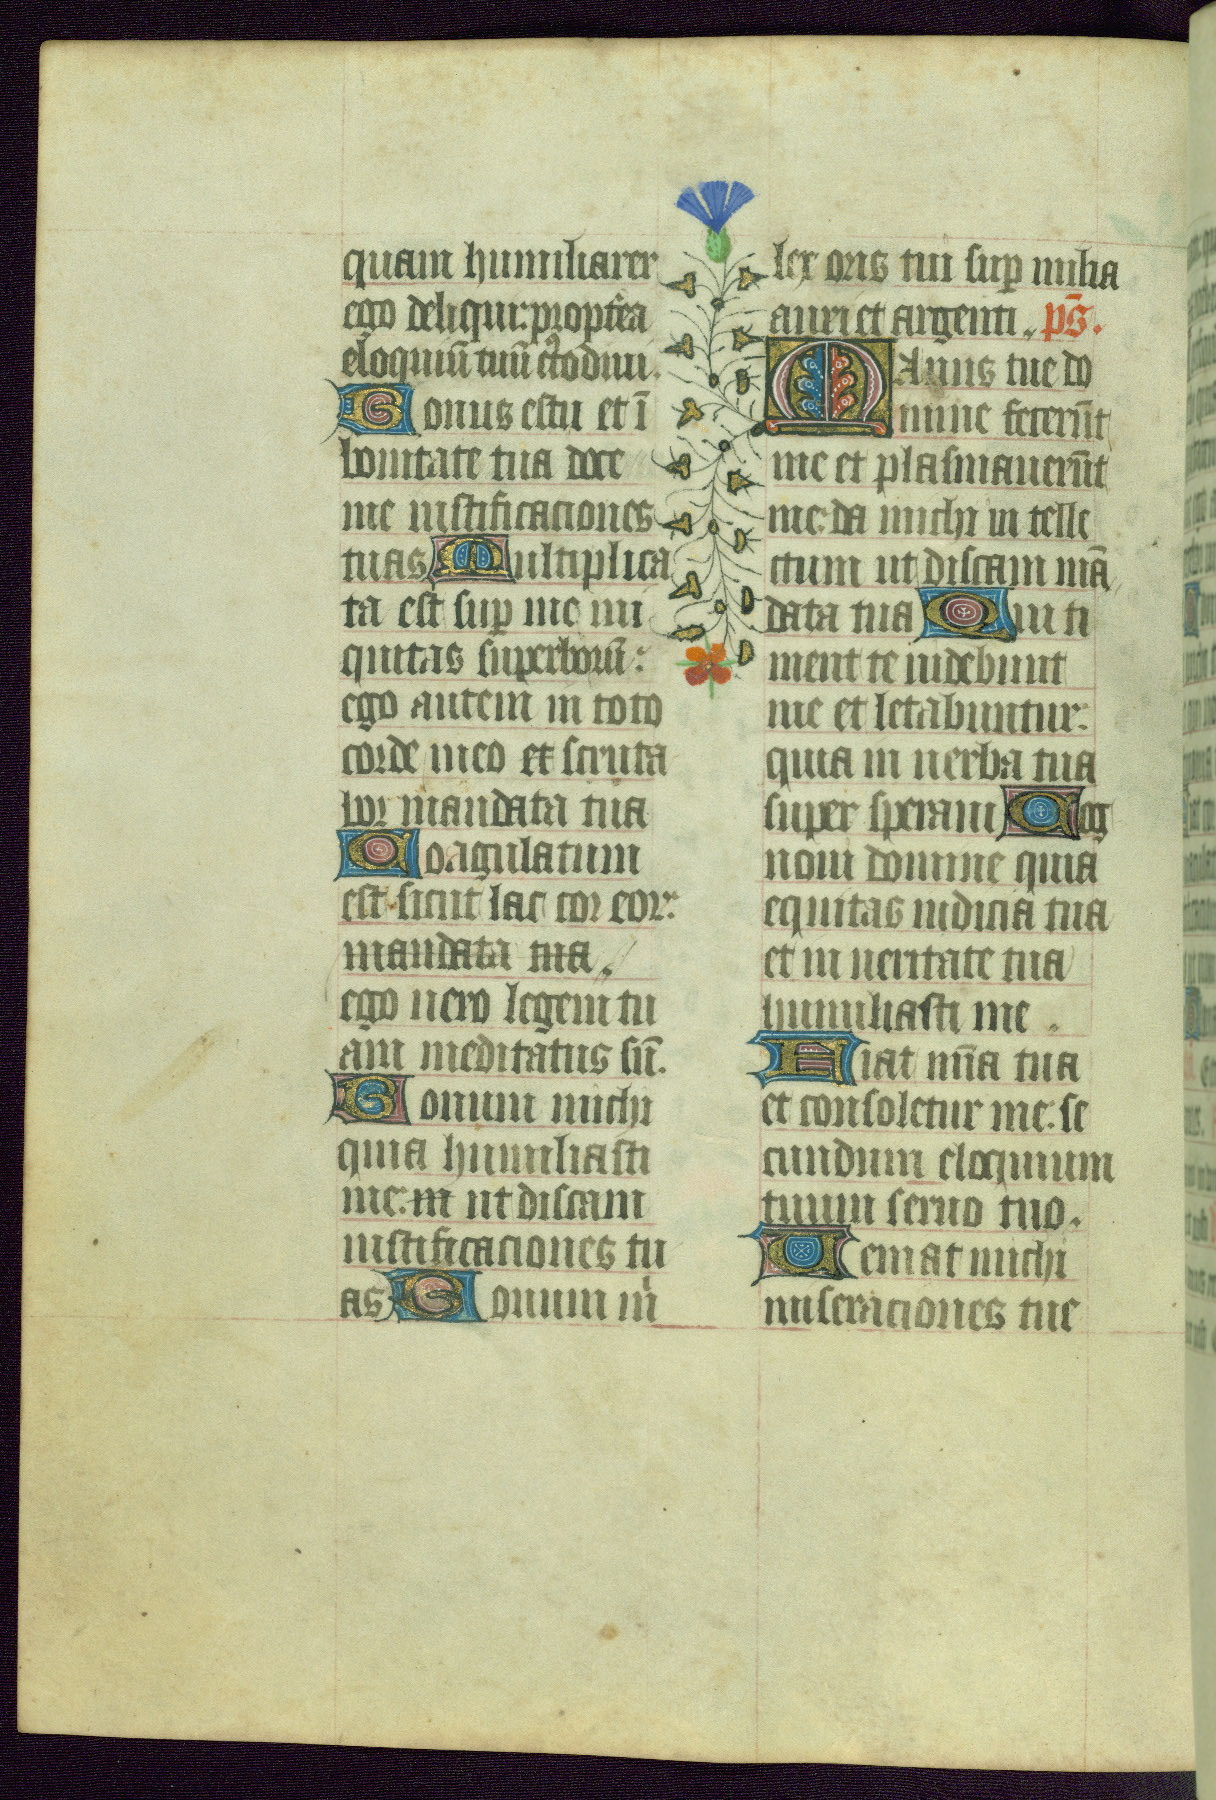 quam humiliarer
ego deliqui: propt̄ea
eloquiū tuū custodiui.
Bonus es tu et ī
bonitate tua doce
me iustificaciones
tuas Multiplica
ta est sup̄ me ini
quitas superborū:
ego autem in toto
corde meo et scruta
bor mandata tua
Coagulatum
est sicut lac cor eor:
mandata tua.
ego uero legem tu
am meditatus sū.
Bonum michi
quia humiliasti
me: in ut discam
iustificaciones tu
as Bonum m̄
lex oris tui sup̄ milia
auri et argenti. ps̄.
Manus tue do
mine fecerūt
me et plasmauerūt
me: da michi in telle
ctum ut discam mā
data tua Qui ti
ment te uidebunt
me et letabuntur:
quia in uerba tua
super speraui Cog
noui domine quia
equitas iudicia tua
et in ueritate tua
humiliasti me.
Fiat mīa tua
et consoletur me: se
cundum eloquium
tuum seruo tuo.
Ueniat michi
miseraciones tue